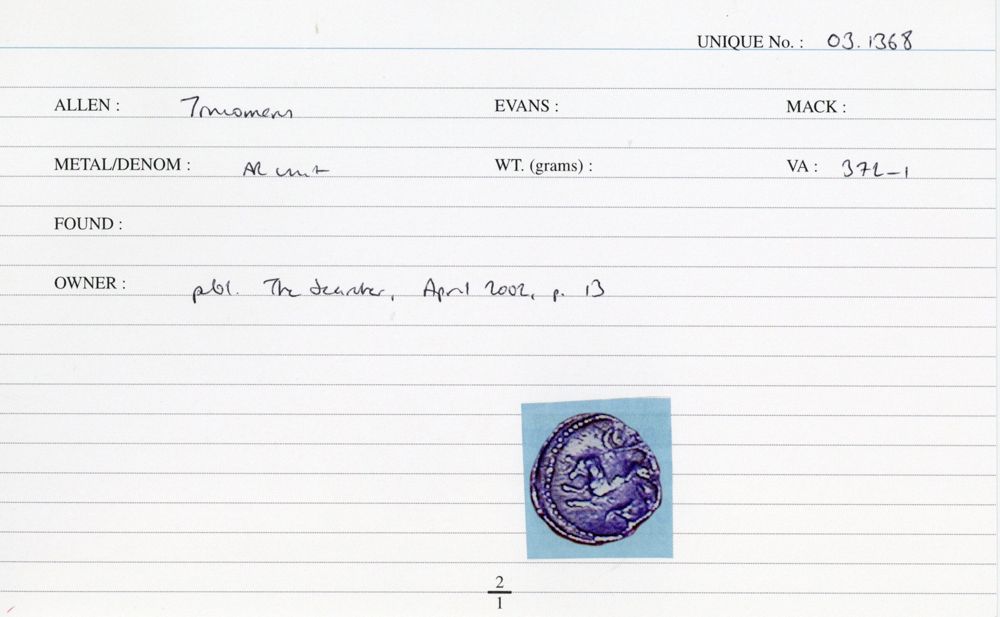 UNIQUE No. : 03.1368
ALLEN : Trinovantes EVANS : MACK :
METAL/DENOM : AR unit WT. (grams) : VA : 372-1
FOUND :
OWNER : publ. The Searcher, April 2002, p. 13
2
1